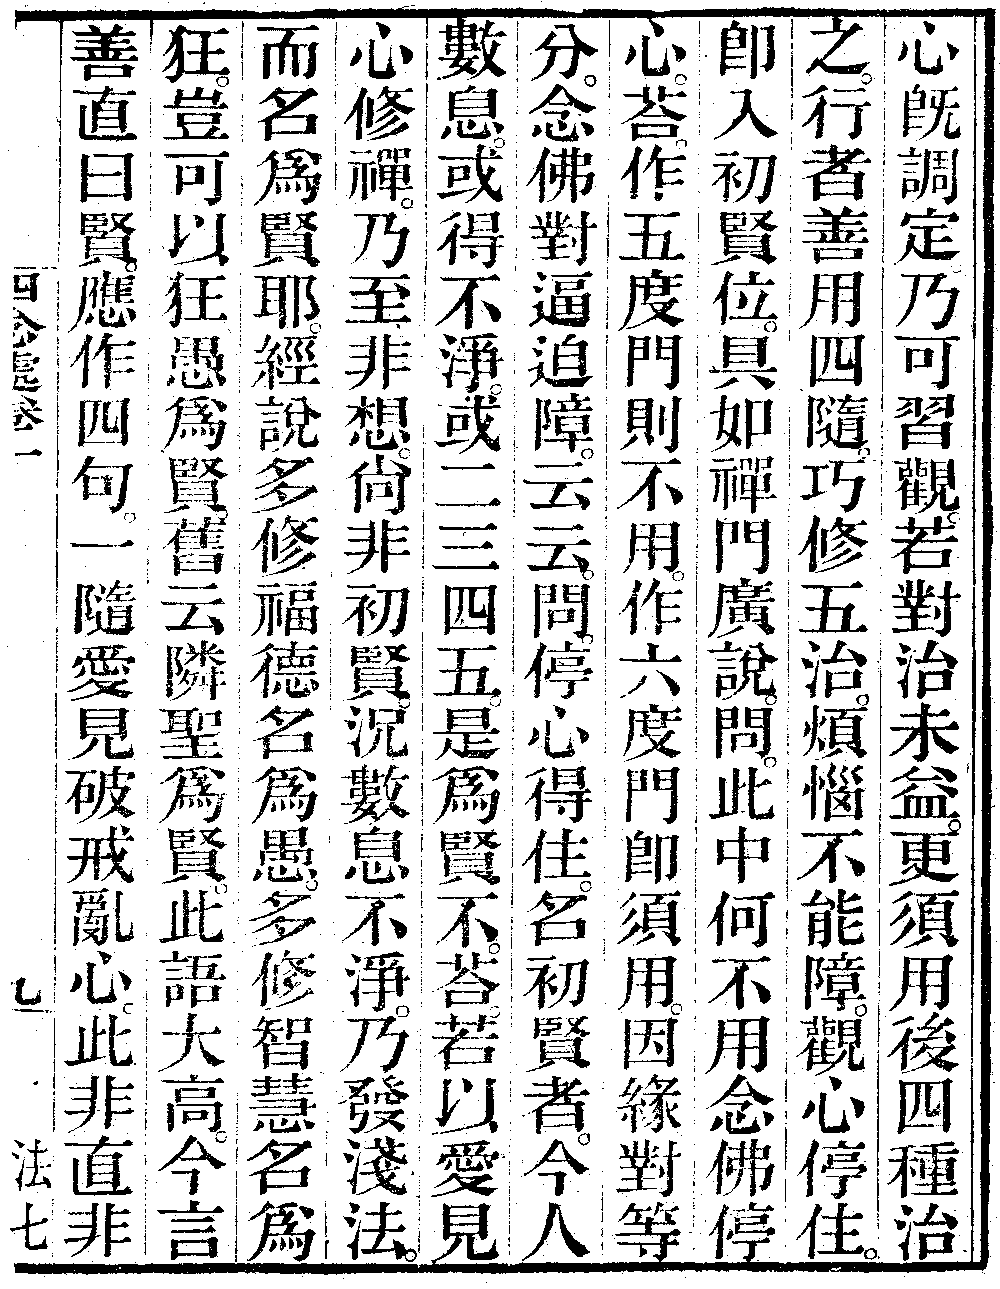 心旣調定乃可習觀。若對治未益。更須用後四種治
之。行者善用四隨。巧修五治。煩惱不能障。觀心停住。
卽入初賢位。具如禪門廣說。問。此中何不用念佛停
心。荅。作五度門則不用。作六度門卽須用。因緣對等
分。念佛對逼迫障。云云。問。停心得住。名初賢者。今人
數息。或得不淨。或二三四五。是爲賢不。荅。若以愛見
心修禪。乃至非想。尙非初賢。況數息不淨。乃發淺法。
而名爲賢耶。經說多修福德名爲愚。多修智慧名爲
狂。豈可以狂愚爲賢。舊云隣聖爲賢。此語大高。今言
善直曰賢。應作四句。一隨愛見破戒亂心。此非直非
四念處卷一 法七